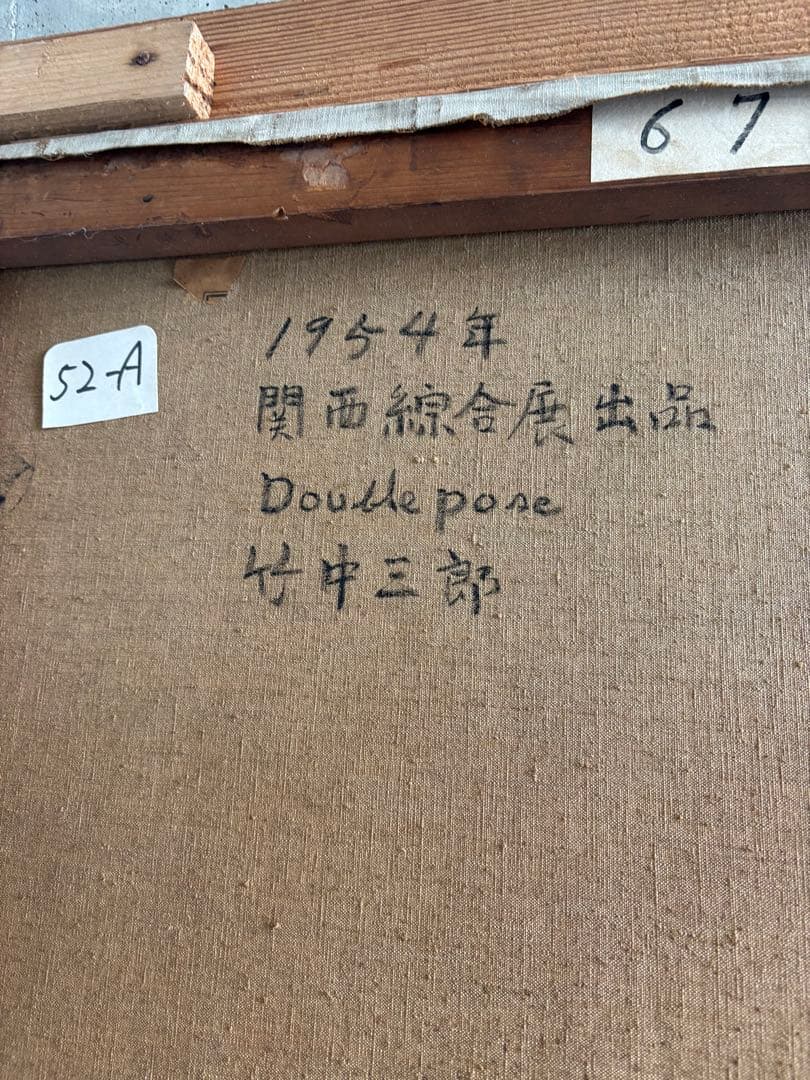 67
52-A
1954年
関西綜合展出品
Double pose
竹中三郎